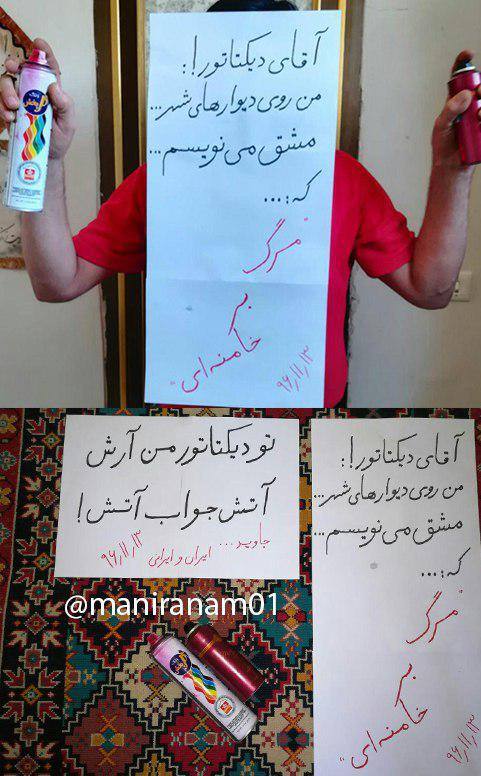 آقای دیکتاتور!:
من روی دیوارهای شهر...
مشق می نویسم...
که:...
"مرگ
بر
خامنه ای"
۹۶/۱۱/۱۳
تو دیکتاتور من آرش
آتش جواب آتش!
جاوید... ایران و ایرانی
۹۶/۱۱/۱۳
@maniranam01
آقای دیکتاتور!:
من روی دیوارهای شهر...
مشق می نویسم...
که:...
"مرگ
بر
خامنه ای"
۹۶/۱۱/۱۳